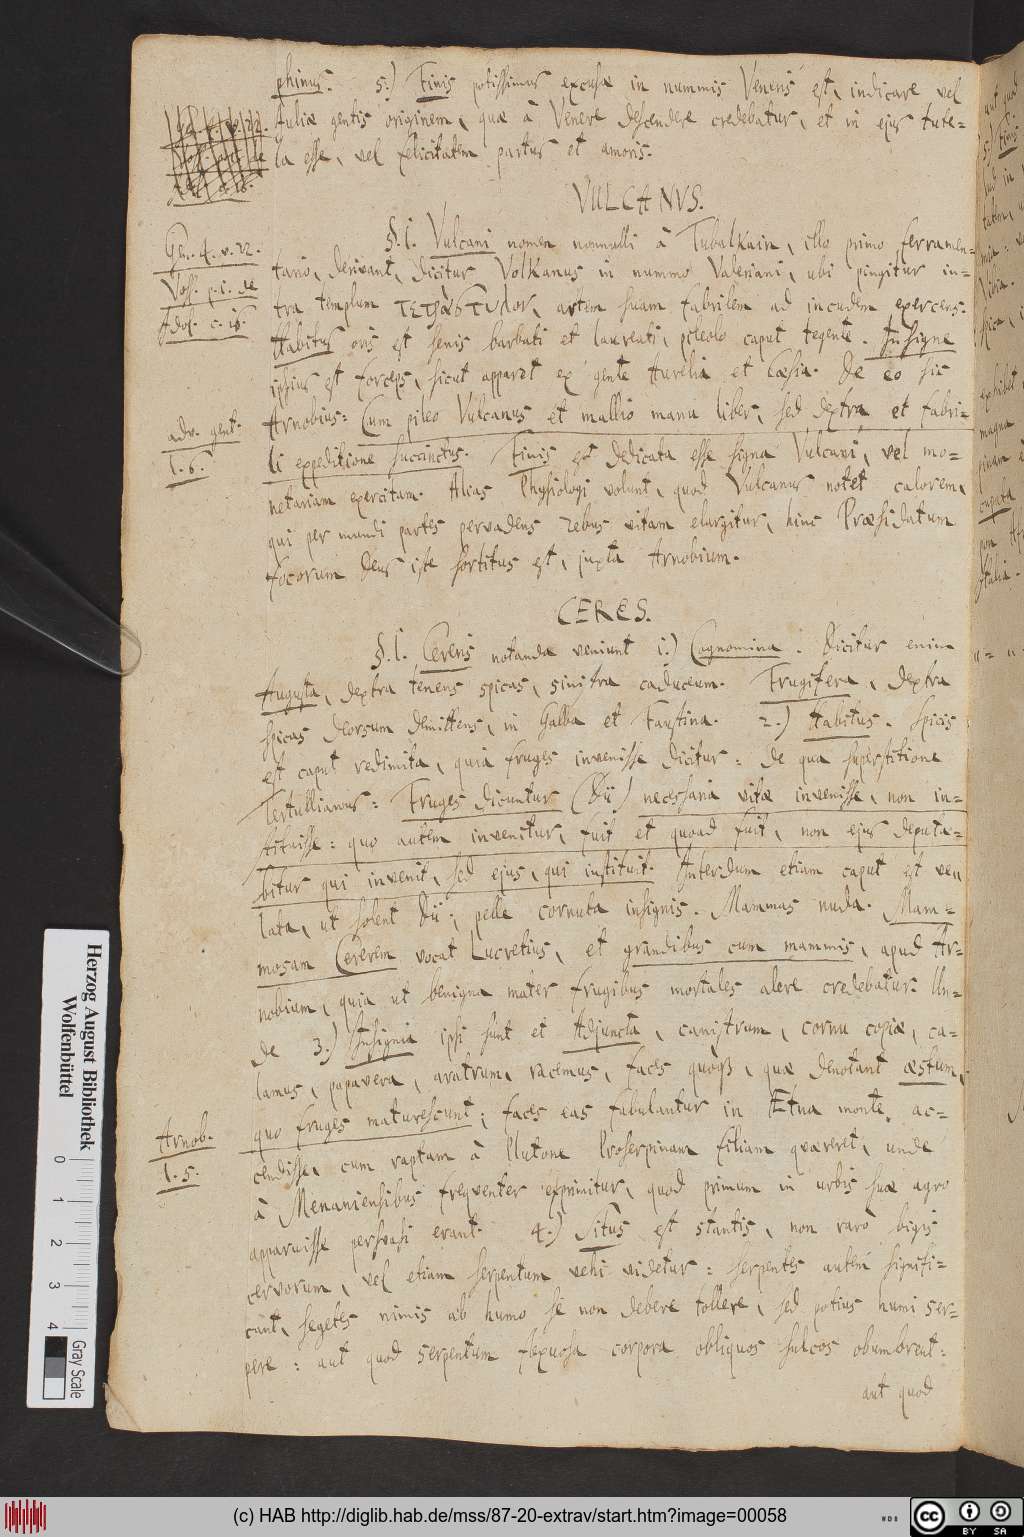 phinus. 5.) Finis potissimus excusæ in nummis Veneris est, indicare vel
Juliæ gentis originem, quæ à Venere descendere credebatur, et in ejus tute=
la esse, vel felicitatem partus et amoris.
VULCANVS.
Gen. 4. v. 22.
Voss. p. 1. de
Idol. c. 16.
§. 1. Vulcani nomen nonnulli à Tubalkain, illo primo ferramen=
tario, derivant, dicitur Volkanus in nummo Valeriani, ubi pingitur in=
tra templum τετράστυλον, artem suam fabrilem ad incudem exercens.
Habitus oris est senis barbati et laureati, pileolo caput tegente. Insigne
ipsius est forceps, sicut apparet ex gente Aurelia et Cæsia. De eo sic
Arnobius: Cum pileo Vulcanus et malleo manu liber, sed dextra et fabri=
adv. gent.
l. 6.
li expeditione succinctus. Finis est dedicata esse signa Vulcani, vel mo=
netariam exercitam. Alias Physiologi volunt, quod Vulcanus notet calorem,
qui per mundi partes pervadens rebus vitam elargitur, hinc Præsidatum
focorum Deus iste sortitus est, juxta Arnobium.
CERES.
§. 1. Cereris notanda veniunt 1.) Cognomina. Dicitur enim
Augusta, dextra tenens spicas, sinistra caduceum. Frugifera, dextra
spicas deorsum demittens, in Galba et Faustina. 2.) Habitus. Spicis
est caput redimita, quia fruges invenisse dicitur: de qua superstitione
Tertullianus: Fruges dicuntur (Dii) necessaria vitæ invenisse, non in=
stituisse: quo autem invenitur, fuit et quoad fuit, non ejus deputa=
bitur qui invenit, sed ejus, qui instituit. Interdum etiam caput est ve=
lata, ut solent Dii; pelle cornuta insignis. Mammas nuda. Mam=
mosam Cererem vocat Lucretius, et grandibus cum mammis, apud Ar=
nobium, quia ut benigna mater frugibus mortales alere credebatur. Un=
de 3.) Insignia ipsi sunt et Adjuncta, canistrum, cornu copiæ, ca=
lamus, papavera, aratrum, racemus, faces quoq₃, quæ denotant æstum,
quo fruges maturescunt; faces eas fabulantur in Ætna monte ac=
Arnob.
l. 5.
cendisse, cum raptam à Plutone Proserpinam filiam quæreret, unde
à Menaniensibus frequenter exprimitur, quod primum in urbis suæ agro
apparuisse persvasi erant. 4.) Situs est stantis, non raro bigis
cervorum, vel etiam serpentum vehi videtur: serpentes autem signifi=
cant, segetes nimis ab humo se non debere tollere, sed potius humi ser=
pere: aut quod serpentum flexuosa corpora obliquos sulcos obumbrent:
aut quod
Herzog August Bibliothek
Wolfenbüttel
0 1 2 3 4
Gray Scale
(c) HAB http://diglib.hab.de/mss/87-20-extrav/start.htm?image=00058
cc BY SA